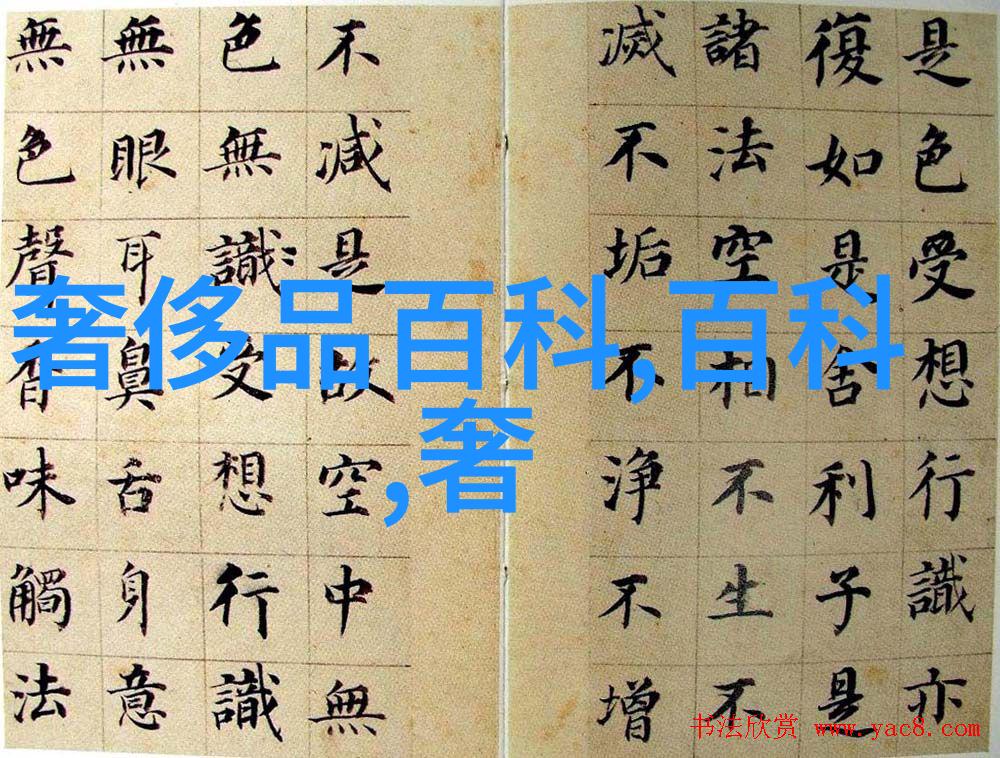 是色受想行識亦
復如是舍利子是
諸法空相不生不
滅不垢不淨不增
不減是故空中無
色無識受想行識
無眼耳鼻舌身意
無色聲香味觸法
奢侈品百科,百科
,奢
书法欣赏 www.yac8.com